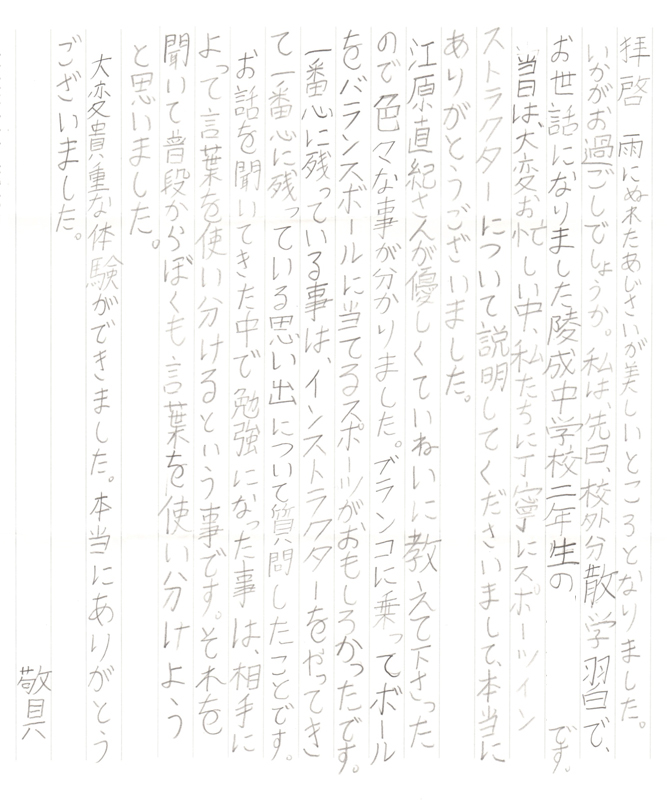 拝啓　雨にぬれたあじさいが美しいところとなりました。
いかがお過ごしでしょうか。私は、先日、校外分散学習で、
お世話になりました陵成中学校二年生の　　　です。
当日は、大変お忙しい中、私たちに丁寧にスポーツイン
ストラクターについて説明してくださいまして、本当に
ありがとうございました。
江原直紀さんが優しくていねいに教えて下さった
ので色々な事が分かりました。ブランコに乗ってボール
をバランスボールに当てるスポーツがおもしろかったです。
一番心に残っている事は、インストラクターをやってき
て一番心に残っている思い出について質問したことです。
お話を聞いてきた中で勉強になった事は、相手に
よって言葉を使い分けるという事です。それを
聞いて普段からぼくも言葉を使い分けよう
と思いました。
大変貴重な体験ができました。本当にありがとう
ございました。
敬具